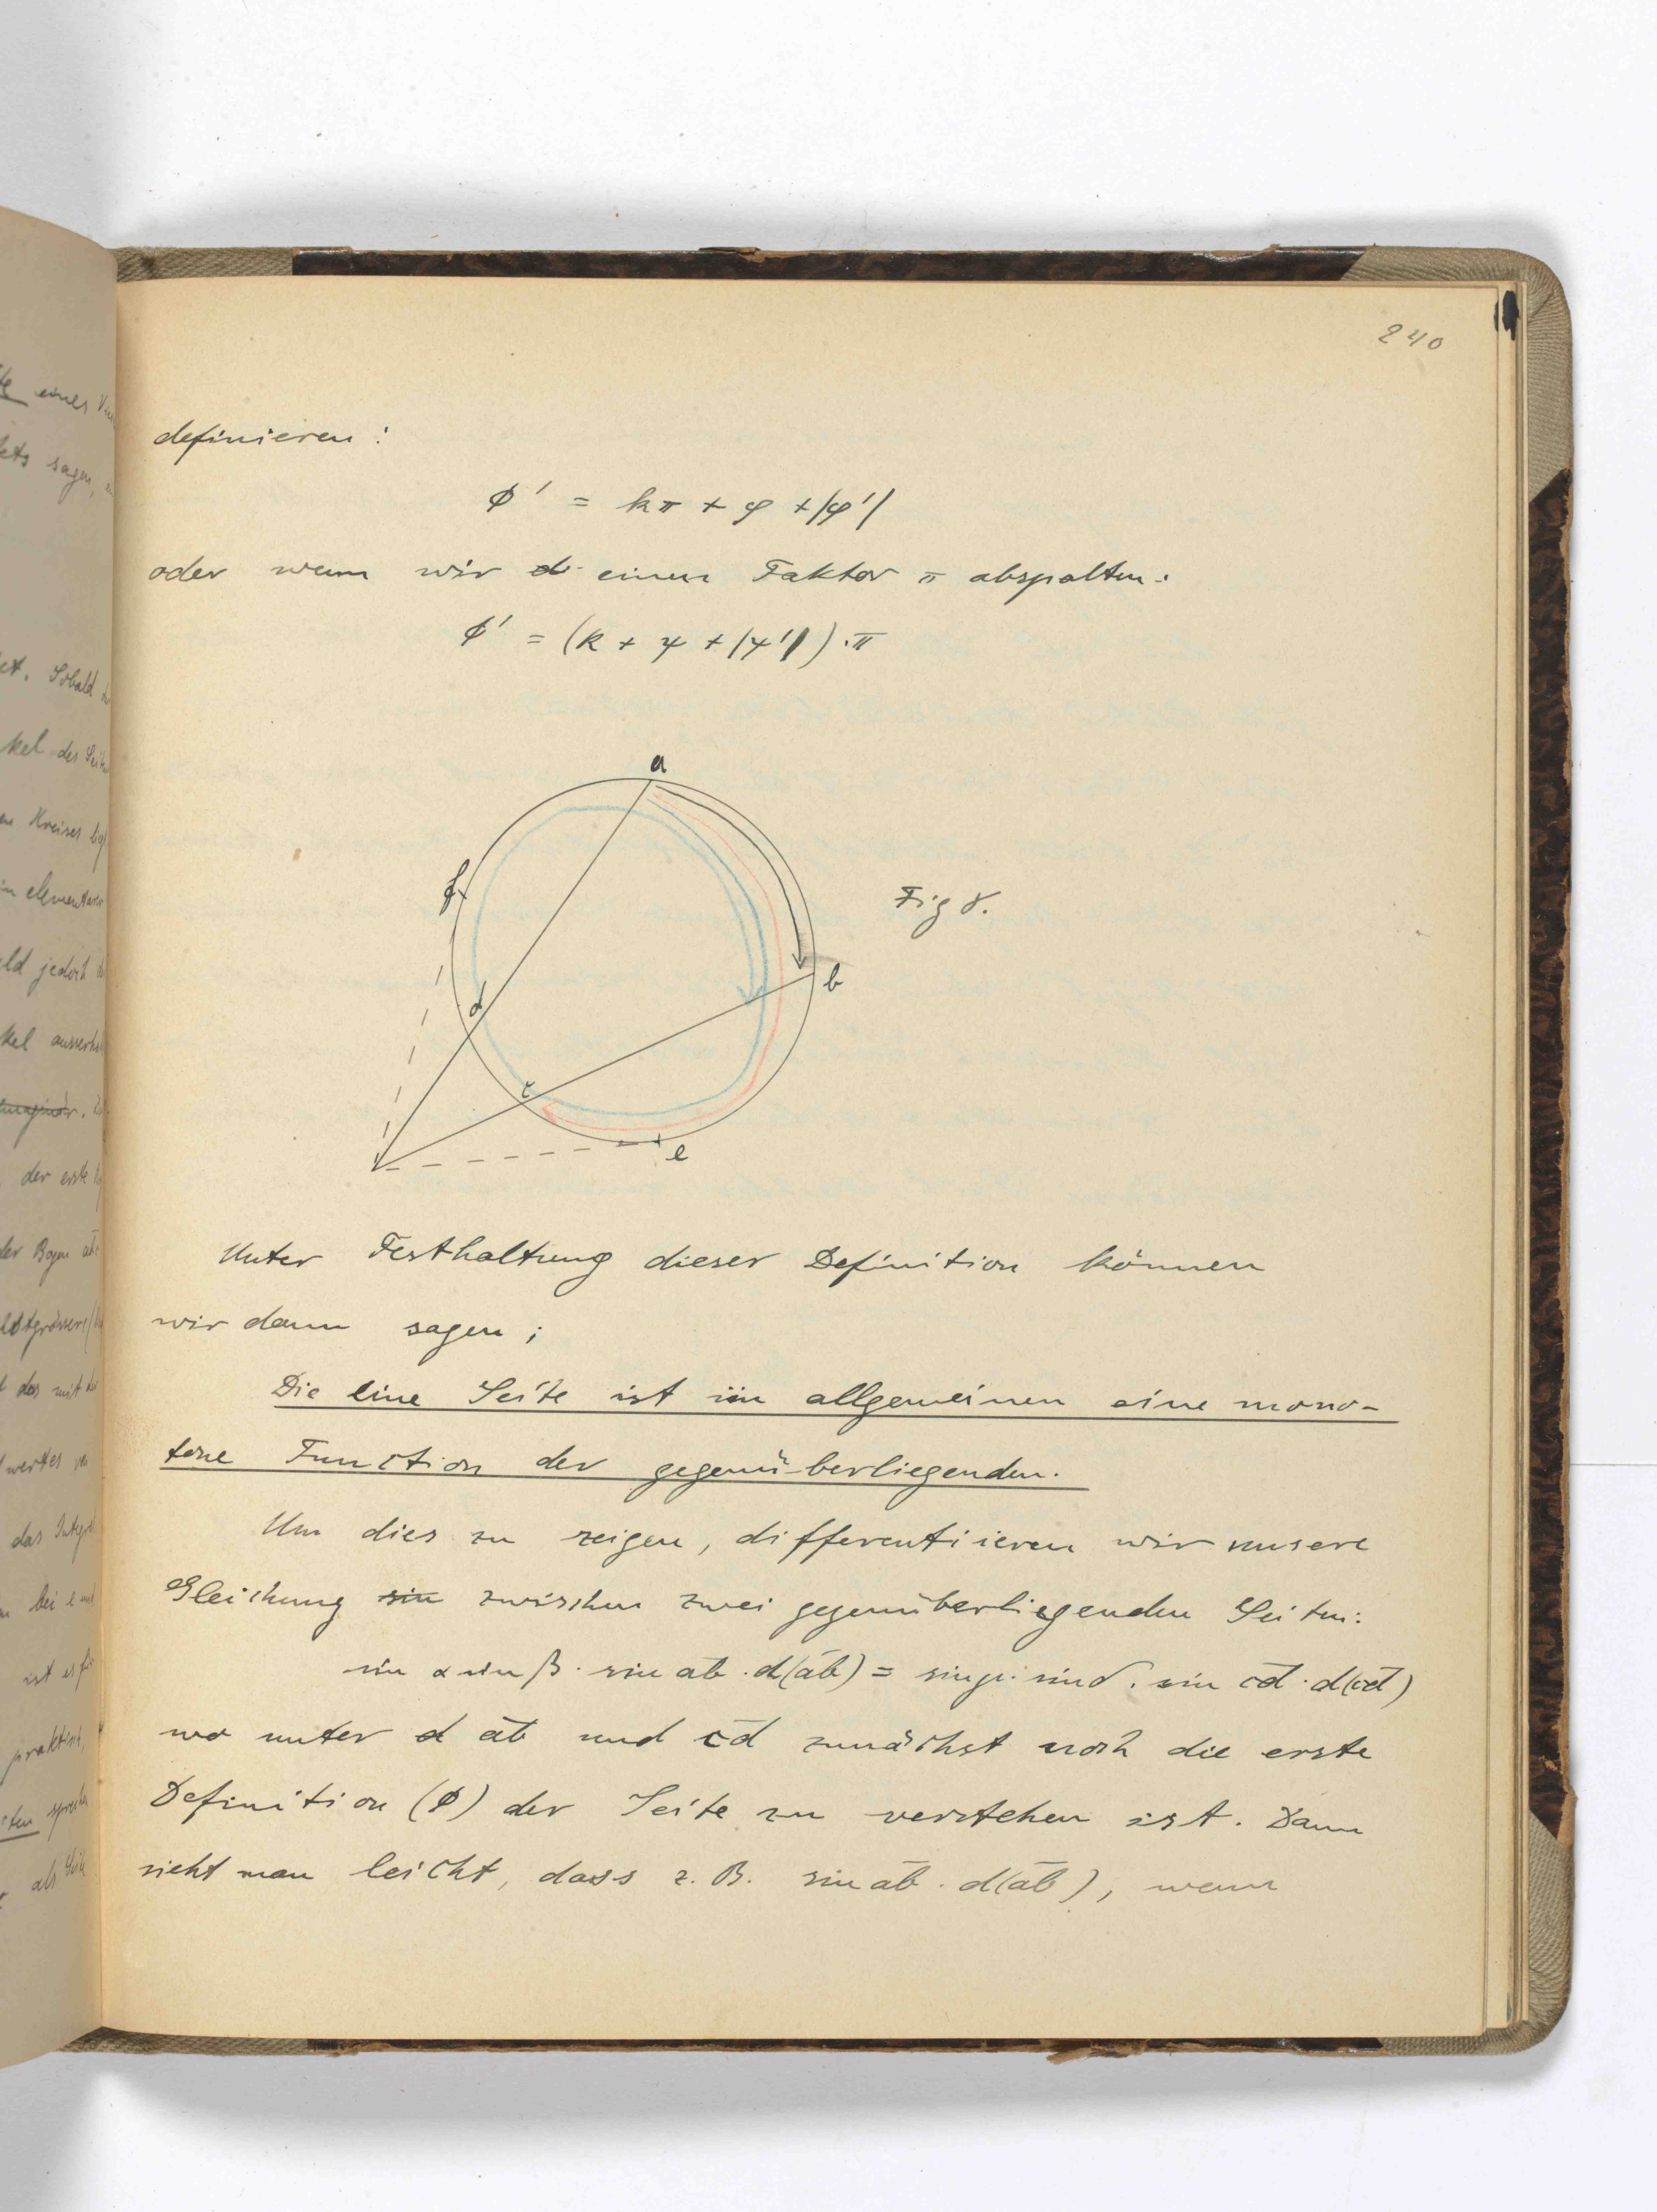 240
definieren :
ϕ' = kπ + φ + |φ'|
oder wenn wir einen Faktor π abspalten:
ϕ' = (k + ψ + |ψ'|)·π
a
f
Fig 8.
b
d
c
e
Unter Festhaltung dieser Definition können
wir dann sagen ;
Die eine Seite ist im allgemeinen eine mono-
tone Function der gegenü-berliegenden.
Um dies zu zeigen, differentiieren wir unsere
Gleichung sin zwischen zwei gegenüberliegenden Seiten:
sin α sin β · sin a̅b̅ · d(a̅b̅) = sin γ · sin δ · sin c̅d̅ · d(c̅d̅)
wo unter d a̅b̅ und c̅d̅ zunächst noch die erste
Definition (ϕ) der Seite zu verstehen ist. Dann
sieht man leicht, dass z. B. sin a̅b̅ · d(a̅b̅), wenn
eines
sagen,
Sobald
kel der
Kreises
elementaren
jedoch
der erste
der Bogen
das mit
wertes
das
bei e und
ist es
praktisch,
als